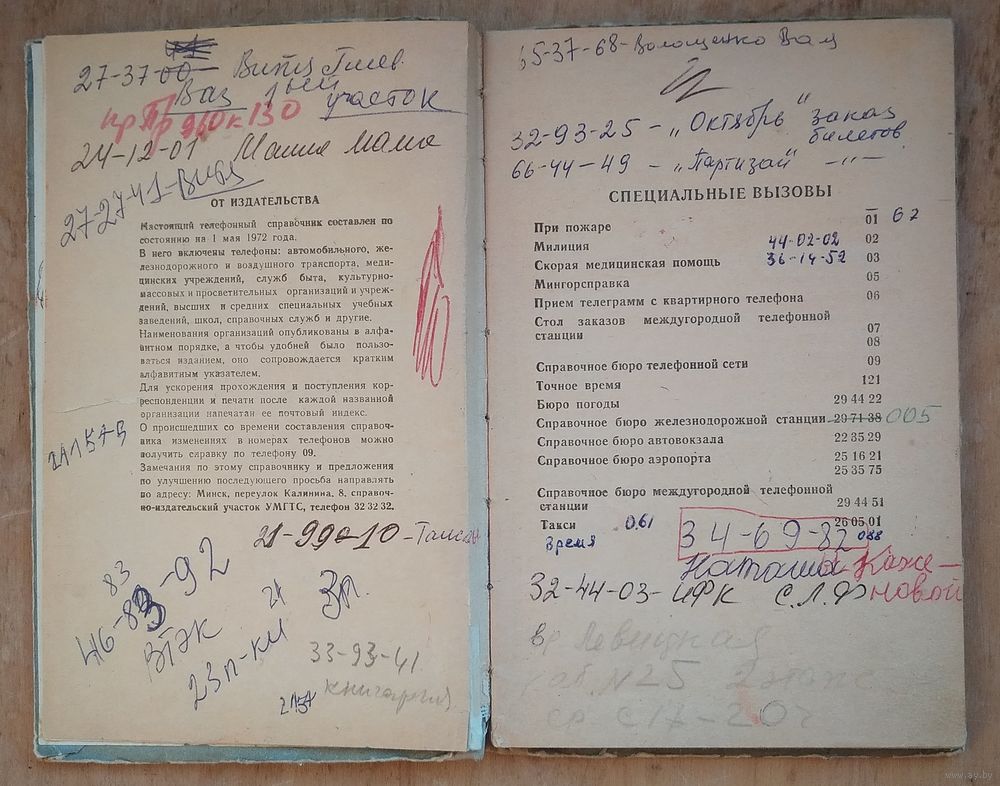 27-37-00 Витя Гиев
Ваз 1ый участок
24-12-01 Маша мама
27-27-41-Витя
ОТ ИЗДАТЕЛЬСТВА
Настоящий телефонный справочник составлен по
состоянию на 1 мая 1972 года.
В него включены телефоны: автомобильного, же-
лезнодорожного и воздушного транспорта, меди-
цинских учреждений, служб быта, культурно-
массовых и просветительных организаций и учреж-
дений, высших и средних специальных учебных
заведений, школ, справочных служб и другие.
Наименования организаций опубликованы в алфа-
витном порядке, а чтобы удобней было пользо-
ваться изданием, оно сопровождается кратким
алфавитным указателем.
Для ускорения прохождения и поступления кор-
респонденции и печати после каждой названной
организации напечатан ее почтовый индекс.
О происшедших со времени составления справоч-
ника изменениях в номерах телефонов можно
получить справку по телефону 09.
Замечания по этому справочнику и предложения
по улучшению последующего просьба направлять
по адресу: Минск, переулок Калинина, 8, справоч-
но-издательский участок УМГТС, телефон 32 32 32.
21-99-10-
83
46-83-92
ВТЭК
23п-км 24 Зп.
33-93-41
книгарня
5-37-68-Волощенко Вал
32-93-25 - „Октябрь" заказ
билетов
66-44-49 - „Партизан" -"-
СПЕЦИАЛЬНЫЕ ВЫЗОВЫ
При пожаре 01 62
Милиция 44-02-02 02
Скорая медицинская помощь 36-14-52 03
Мингорсправка 05
Прием телеграмм с квартирного телефона 06
Стол заказов междугородной телефонной
станции 07
08
Справочное бюро телефонной сети 09
Точное время 121
Бюро погоды 29 44 22
Справочное бюро железнодорожной станции 29 71 38 005
Справочное бюро автовокзала 22 35 29
Справочное бюро аэропорта 25 16 21
25 35 75
Справочное бюро междугородной телефонной
станции 29 44 51
Такси 061 26 05 01
Время 34-69-82 088
Наташа Каже-
новой
32-44-03-ИФК С.Л.Ф
вр Левицкая
каб N25 2 этаж
ср. с 17-20ч
www.ay.by